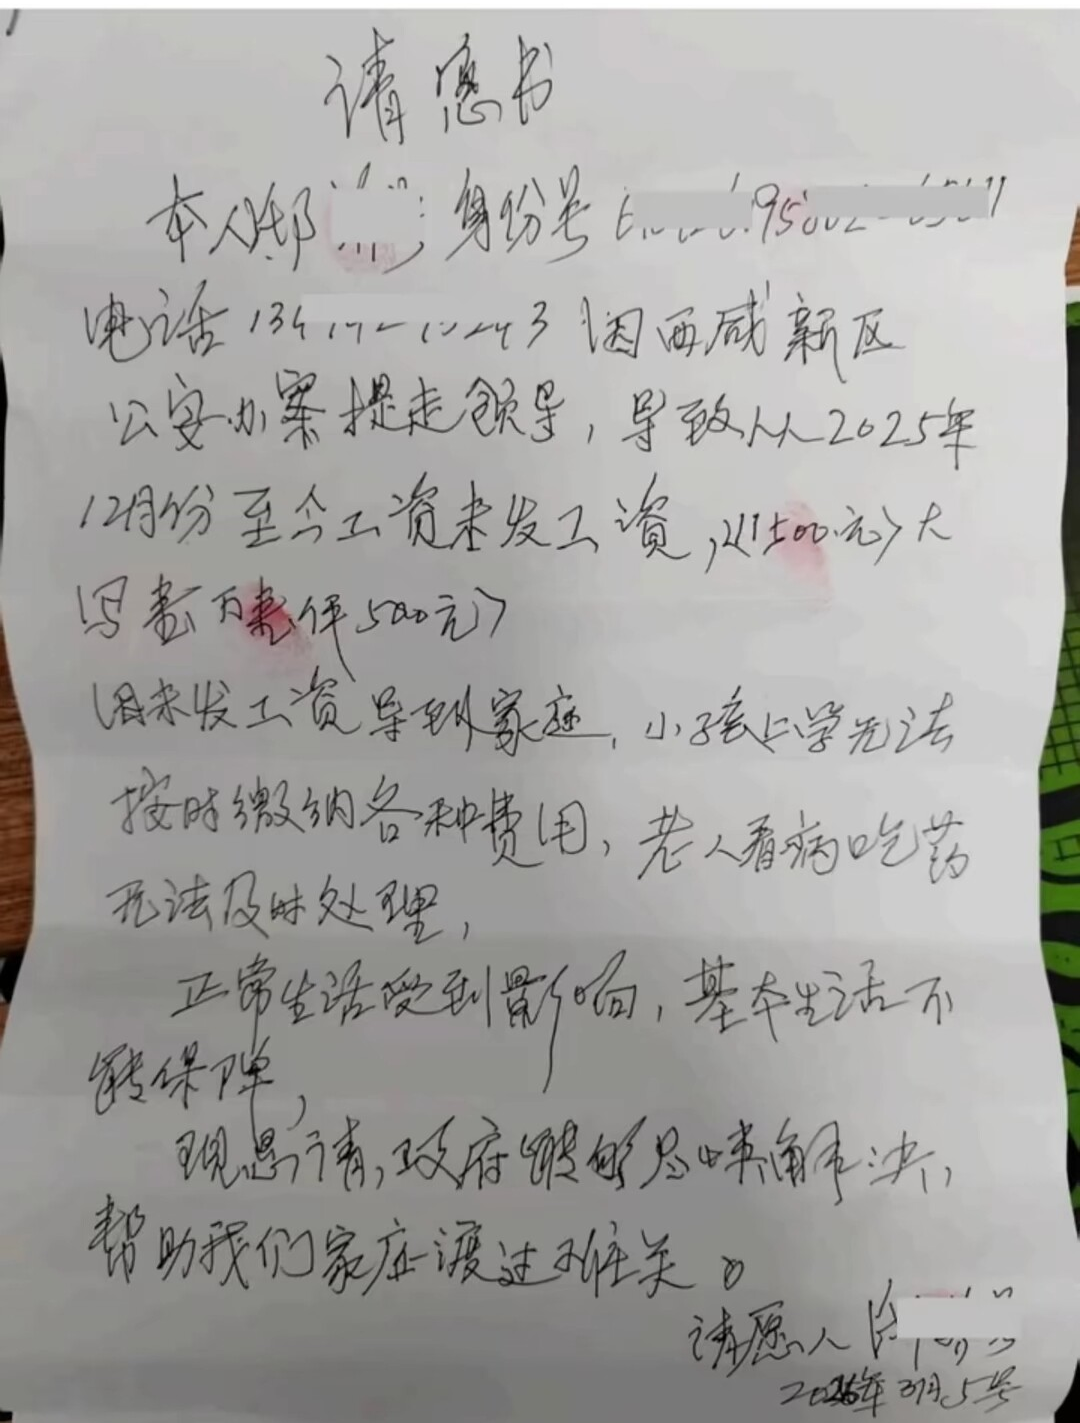 请愿书
本人郑 身份号
电话134 3 因西咸新区
公安办案提走领导，导致从2025年
12月份至今工资未发工资，《11500元》大
写壹万壹仟500元》
因未发工资导致家庭，小孩上学无法
按时缴纳各种费用，老人看病吃药
无法及时处理，
正常生活受到影响，基本生活不
能保障，
现恳请，政府能够尽快解决，
帮助我们家庭渡过难关。
请愿人
2026年3月5号